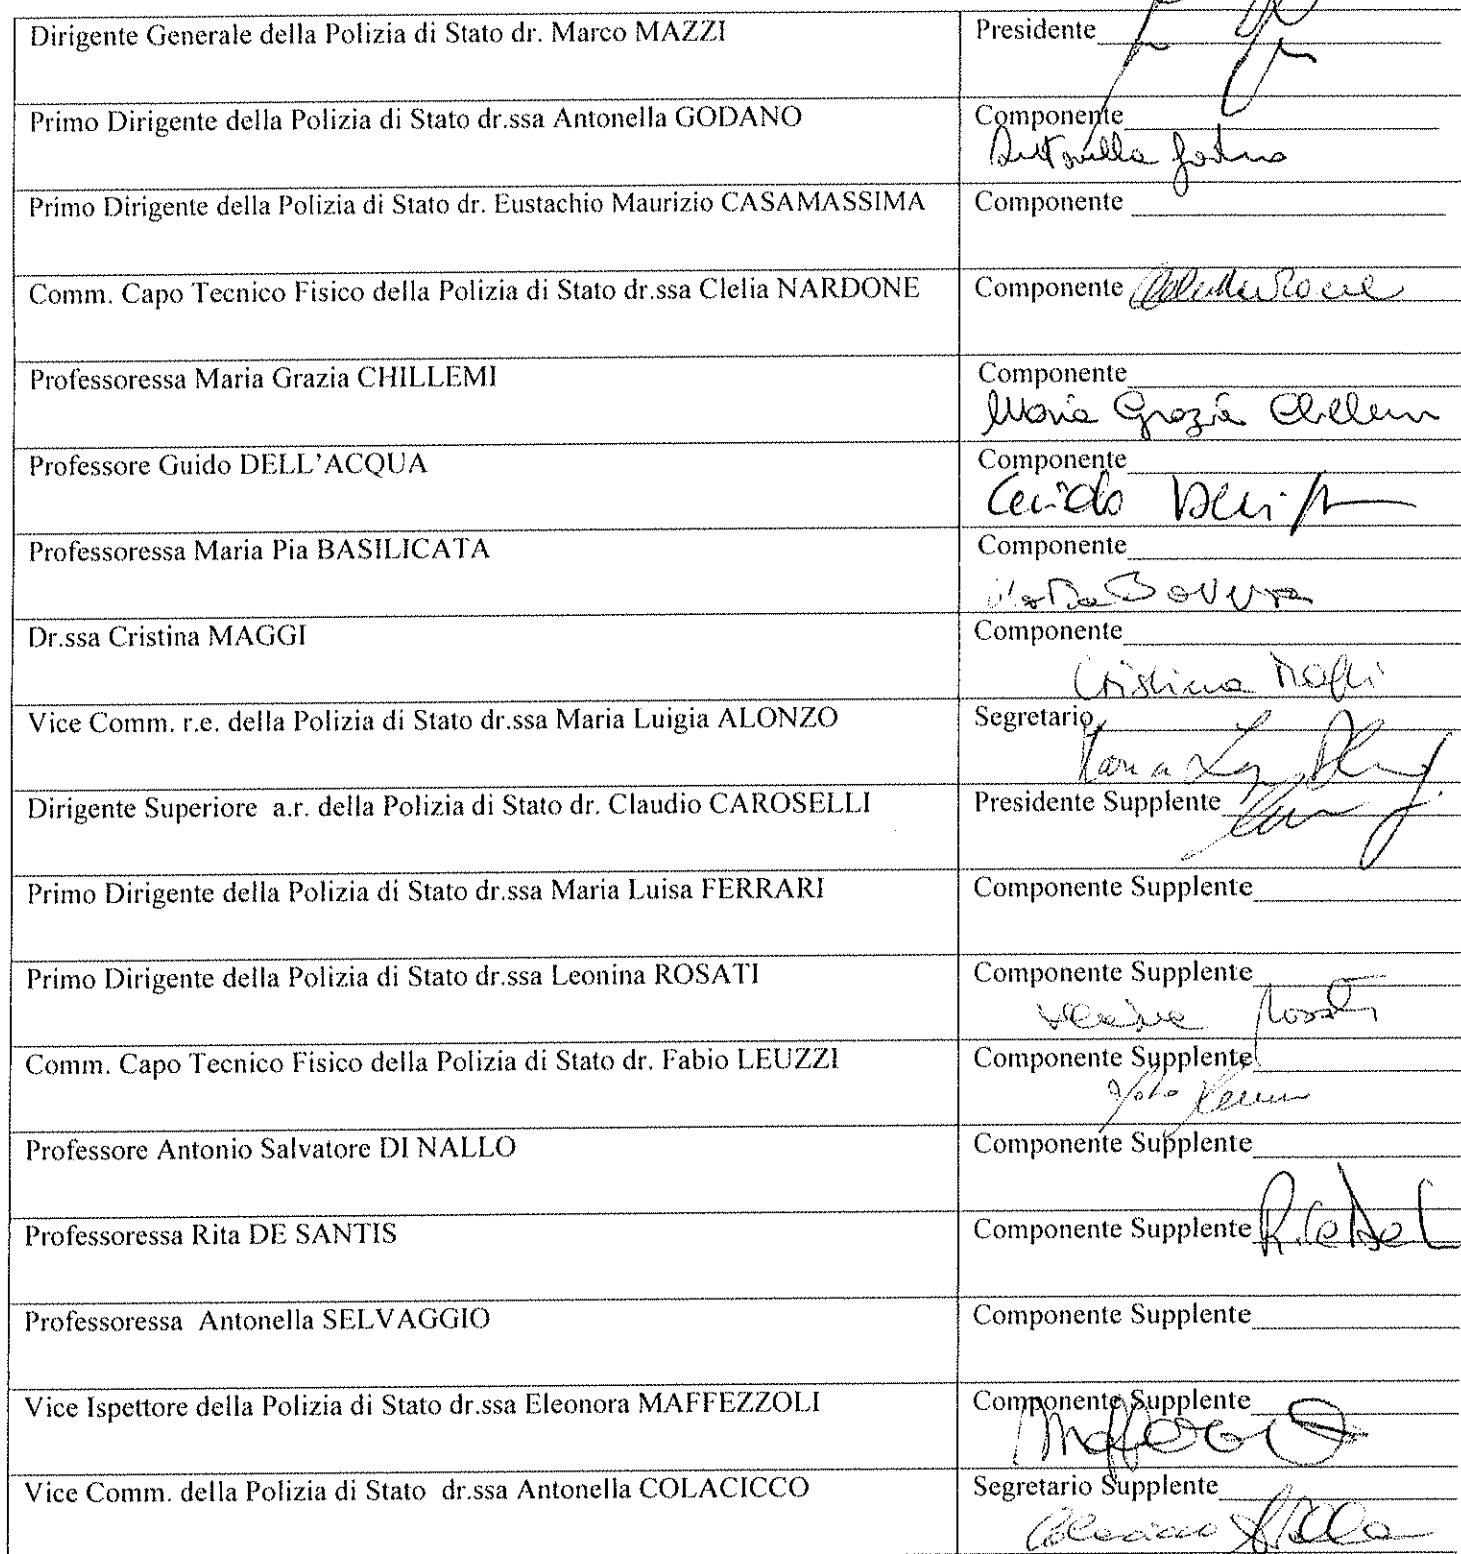 Dirigente Generale della Polizia di Stato dr. Marco MAZZI
Presidente
Primo Dirigente della Polizia di Stato dr.ssa Antonella GODANO
Componente
Antonella Godano
Primo Dirigente della Polizia di Stato dr. Eustachio Maurizio CASAMASSIMA
Componente
Comm. Capo Tecnico Fisico della Polizia di Stato dr.ssa Clelia NARDONE
Componente
Professoressa Maria Grazia CHILLEMI
Componente
Maria Grazia Chillemi
Professore Guido DELL'ACQUA
Componente
Guido
Professoressa Maria Pia BASILICATA
Componente
Dr.ssa Cristina MAGGI
Componente
Cristina Maggi
Vice Comm. r.e. della Polizia di Stato dr.ssa Maria Luigia ALONZO
Segretario
Maria
Dirigente Superiore a.r. della Polizia di Stato dr. Claudio CAROSELLI
Presidente Supplente
Primo Dirigente della Polizia di Stato dr.ssa Maria Luisa FERRARI
Componente Supplente
Primo Dirigente della Polizia di Stato dr.ssa Leonina ROSATI
Componente Supplente
Rosati
Comm. Capo Tecnico Fisico della Polizia di Stato dr. Fabio LEUZZI
Componente Supplente
Professore Antonio Salvatore DI NALLO
Componente Supplente
Professoressa Rita DE SANTIS
Componente Supplente
Professoressa Antonella SELVAGGIO
Componente Supplente
Vice Ispettore della Polizia di Stato dr.ssa Eleonora MAFFEZZOLI
Componente Supplente
Vice Comm. della Polizia di Stato dr.ssa Antonella COLACICCO
Segretario Supplente